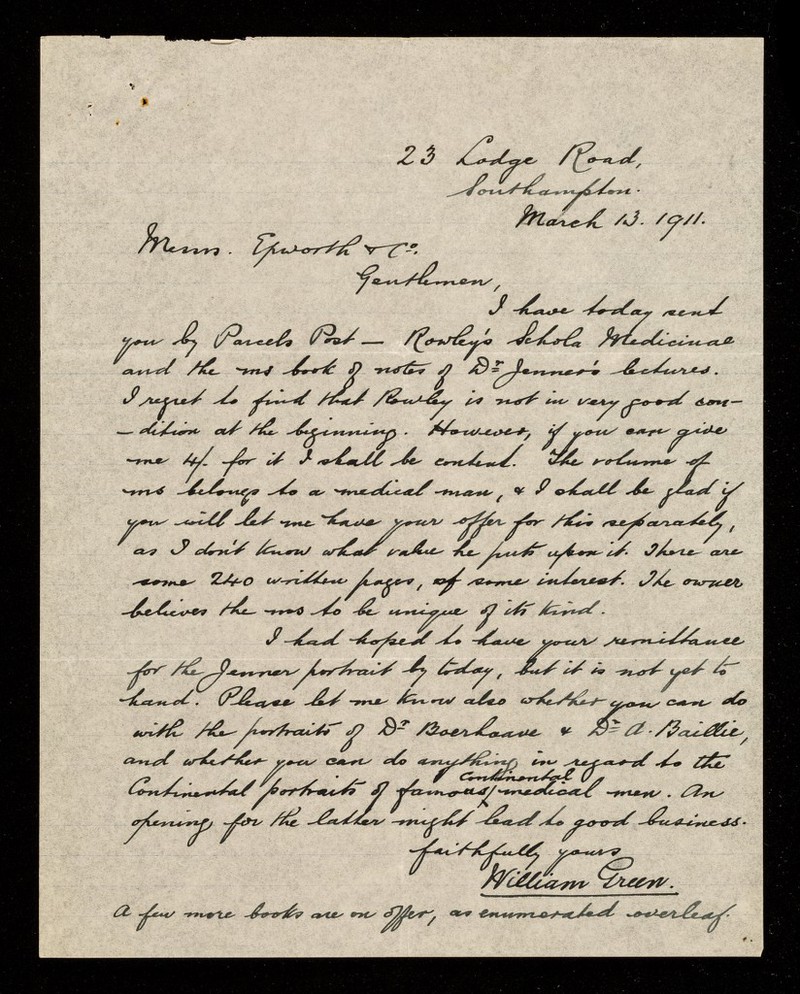 23 Lodge Road,
Southampton.
March 13. 1911.
Messrs. Epworth & Co.
Gentlemen,
I have today sent
you by Parcels Post — Rowley's Schola Medicinae
and the ms book of notes of Dr Jenner's lectures.
I regret to find that Rowley is not in very good con-
-dition at the beginning. However, if you can give
me 4/- for it I shall be content. The volume of
ms belongs to a medical man, & I shall be glad if
you will let me have your offer for this separately,
as I don't know what value he puts upon it. There are
some 240 written pages, of some interest. The owner
believes the ms to be unique of its kind.
I had hoped to have your remittance
for the Jenner portrait by today, but it is not yet to
hand. Please let me know also whether you can do
with the portraits of Dr Boerhaave & Dr A. Baillie,
and whether you can do anything in regard to the
Continental portraits of famous continental medical men. An
opening for the latter might lead to good business.
faithfully yours
William Green.
A few more books are on offer, as enumerated overleaf.